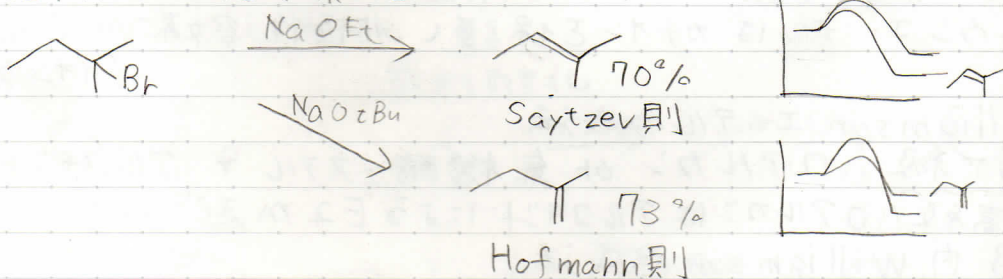 NaOEt
Br
70%
Saytzev則
NaOtBu
73%
Hofmann則